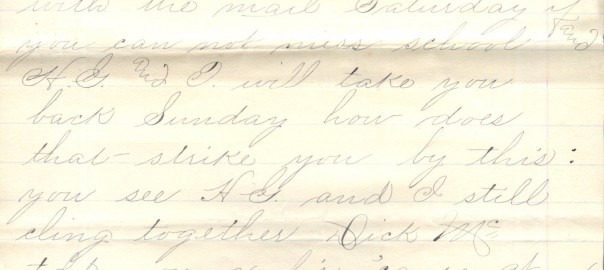 with the mail Saturday if
you can not miss school and
H.G. and I. will take you
back Sunday how does
that - strike you by this:
you see H.G. and I still
cling together Dick Mc